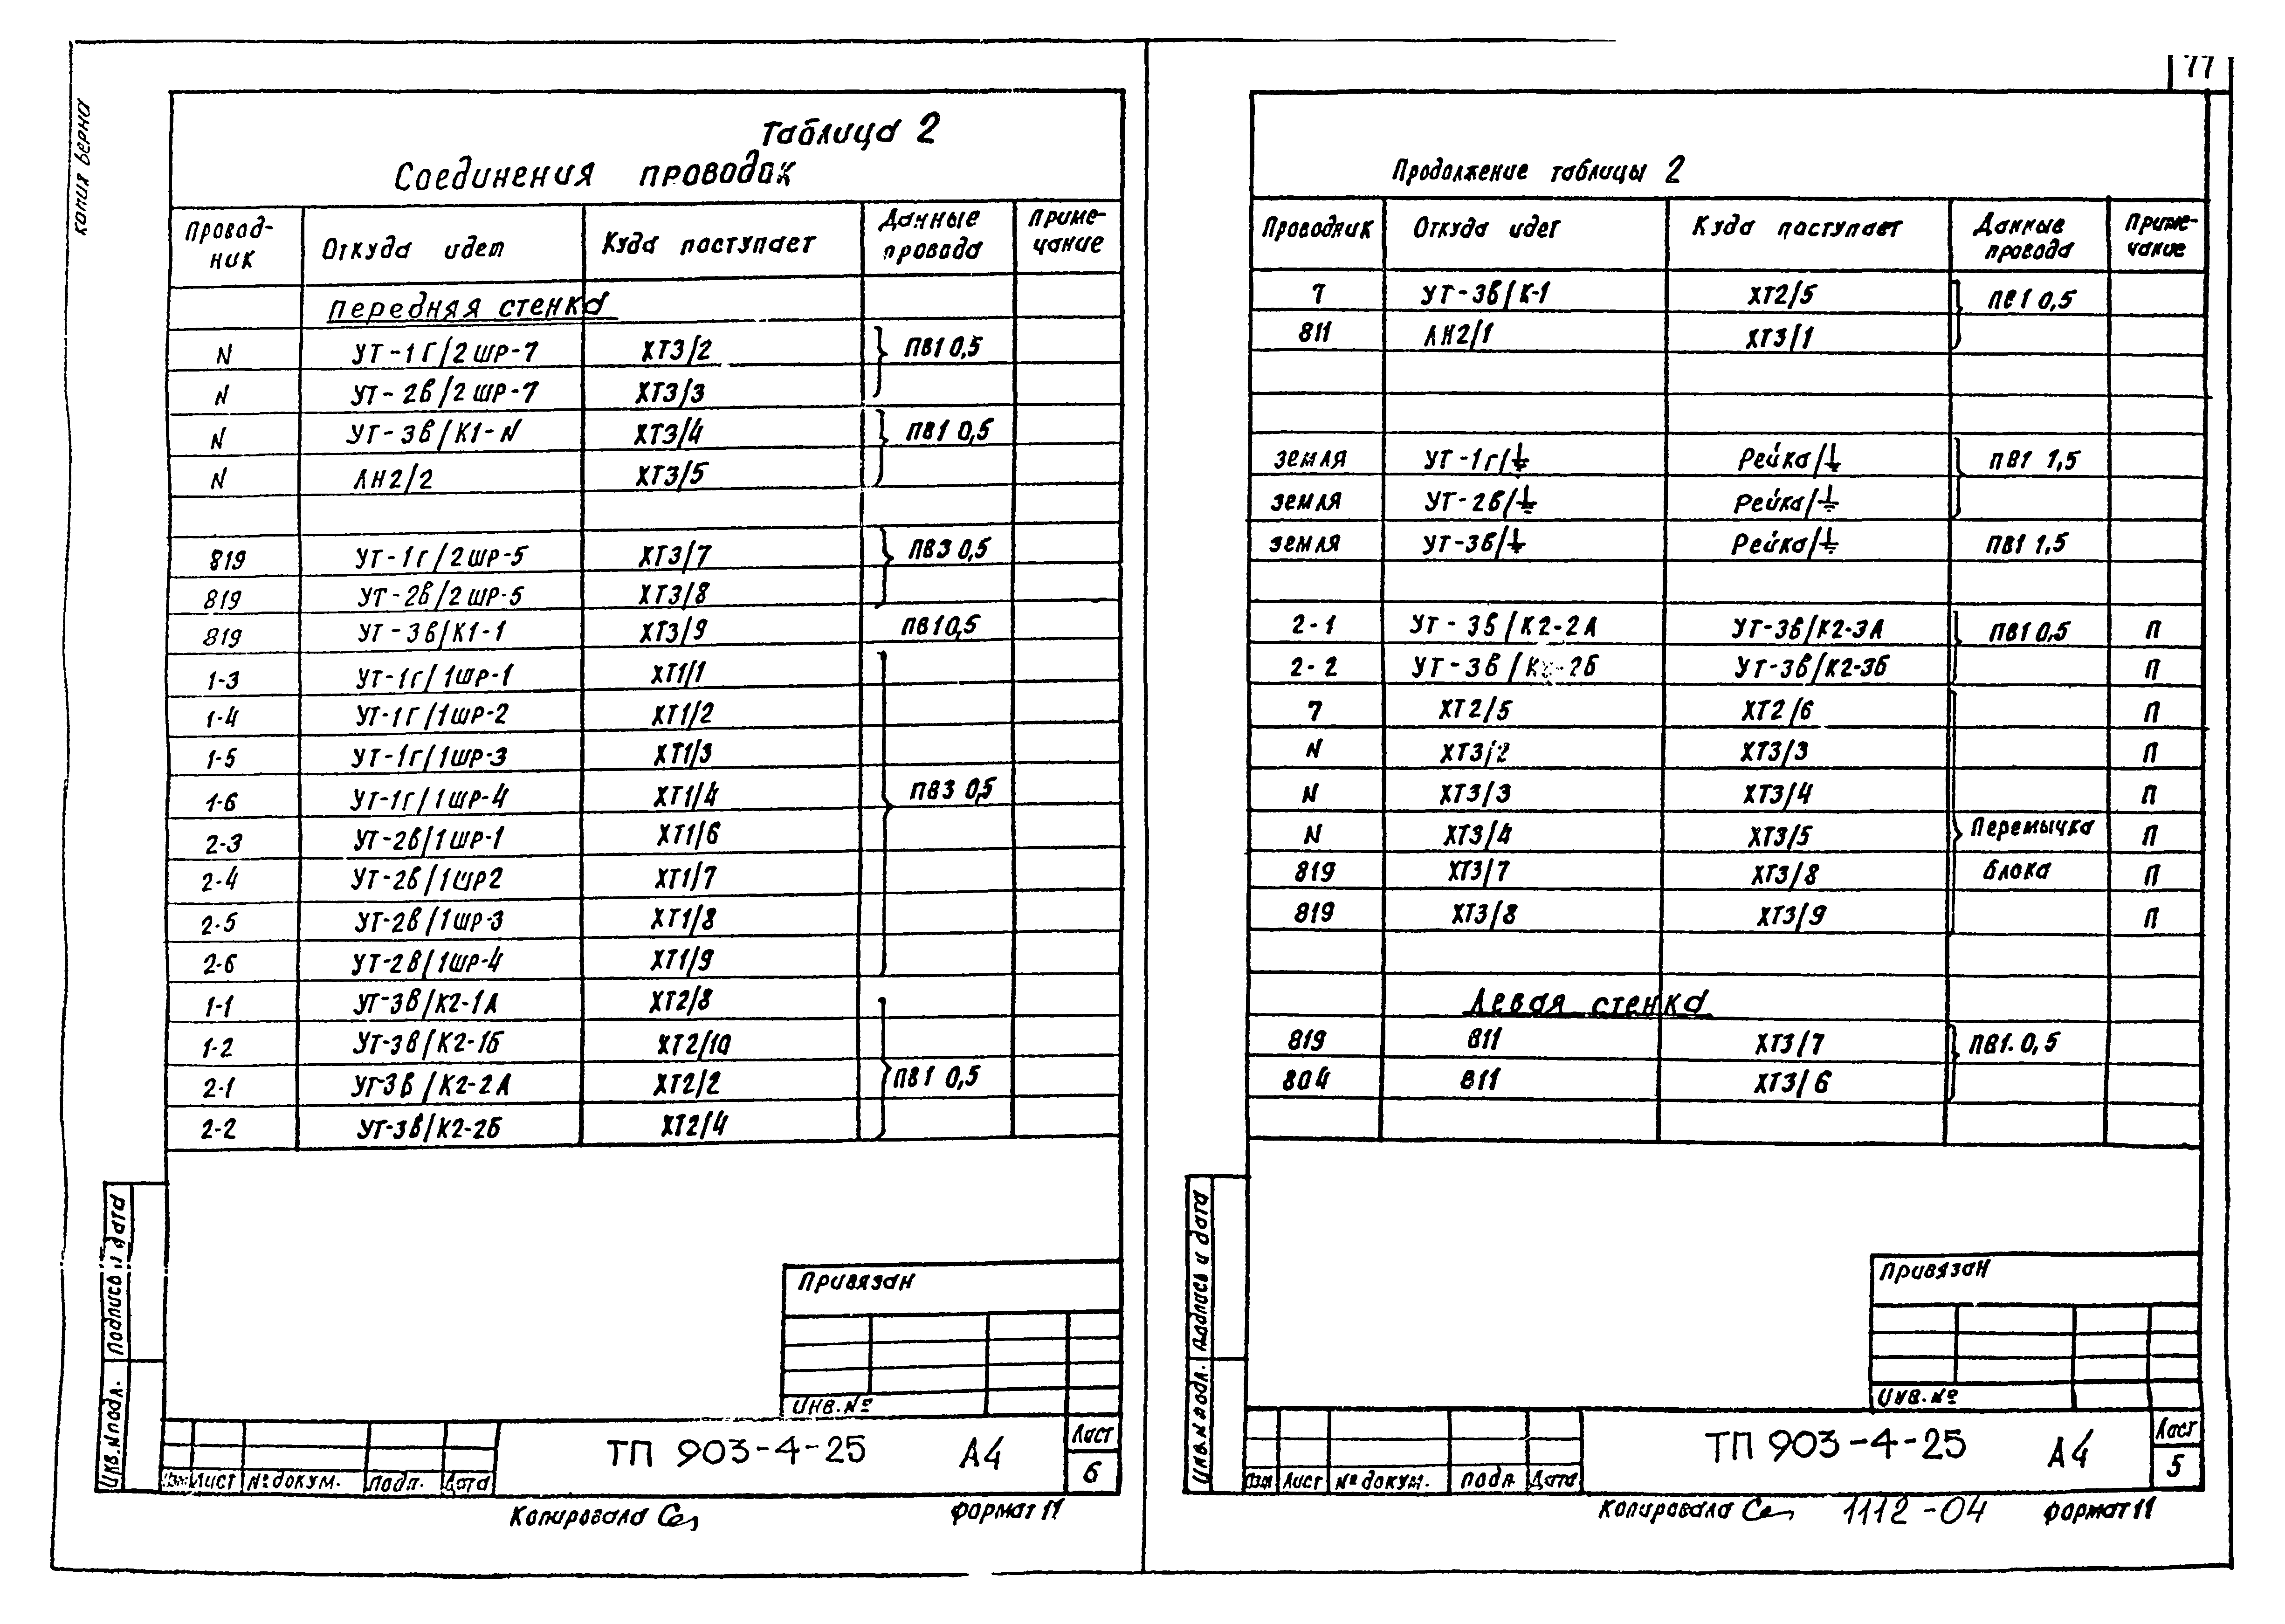 77
копия верна
Таблица 2
Соединения проводок
Провод-ник Откуда идет Куда поступает Данные провода Приме-чание
Передняя стенка
N УТ-1Г/2ШР-7 ХТ3/2 ПВ1 0,5
N УТ-2в/2ШР-7 ХТ3/3
N УТ-3в/К1-N ХТ3/4 ПВ1 0,5
N ЛН2/2 ХТ3/5
819 УТ-1г/2ШР-5 ХТ3/7 ПВ3 0,5
819 УТ-2в/2ШР-5 ХТ3/8
819 УТ-3в/К1-1 ХТ3/9 ПВ1 0,5
1-3 УТ-1г/1ШР-1 ХТ1/1
1-4 УТ-1г/1ШР-2 ХТ1/2
1-5 УТ-1г/1ШР-3 ХТ1/3
1-6 УТ-1г/1ШР-4 ХТ1/4 ПВ3 0,5
2-3 УТ-2в/1ШР-1 ХТ1/6
2-4 УТ-2в/1ШР2 ХТ1/7
2-5 УТ-2в/1ШР-3 ХТ1/8
2-6 УТ-2в/1ШР-4 ХТ1/9
1-1 УТ-3в/К2-1А ХТ2/8
1-2 УТ-3в/К2-1Б ХТ2/10
2-1 УТ-3в/К2-2А ХТ2/2 ПВ1 0,5
2-2 УТ-3в/К2-2Б ХТ2/4
Привязан
Инв.№
ТП 903-4-25 А4
Лист
6
Изм Лист № докум. Подп. Дата
Инв.N подл. Подпись и дата
Копировала
Формат 11
Продолжение таблицы 2
Проводник Откуда идет Куда поступает Данные провода Приме-чание
7 УТ-3в/К-1 ХТ2/5 ПВ1 0,5
811 ЛН2/1 ХТ3/1
земля УТ-1г/⏚ Рейка/⏚ ПВ1 1,5
земля УТ-2в/⏚ Рейка/⏚
земля УТ-3в/⏚ Рейка/⏚ ПВ1 1,5
2-1 УТ-3в/К2-2А УТ-3в/К2-3А ПВ1 0,5 П
2-2 УТ-3в/К2-2Б УТ-3в/К2-3Б П
7 ХТ2/5 ХТ2/6 П
N ХТ3/2 ХТ3/3 П
N ХТ3/3 ХТ3/4 П
N ХТ3/4 ХТ3/5 Перемычка П
819 ХТ3/7 ХТ3/8 блока П
819 ХТ3/8 ХТ3/9 П
Левая стенка
819 811 ХТ3/7 ПВ1. 0,5
804 811 ХТ3/6
Привязан
Инв.№
ТП 903-4-25 А4
Лист
5
Изм Лист № докум. Подп. Дата
Инв.N подл. Подпись и дата
Копировала
1112-04
Формат 11